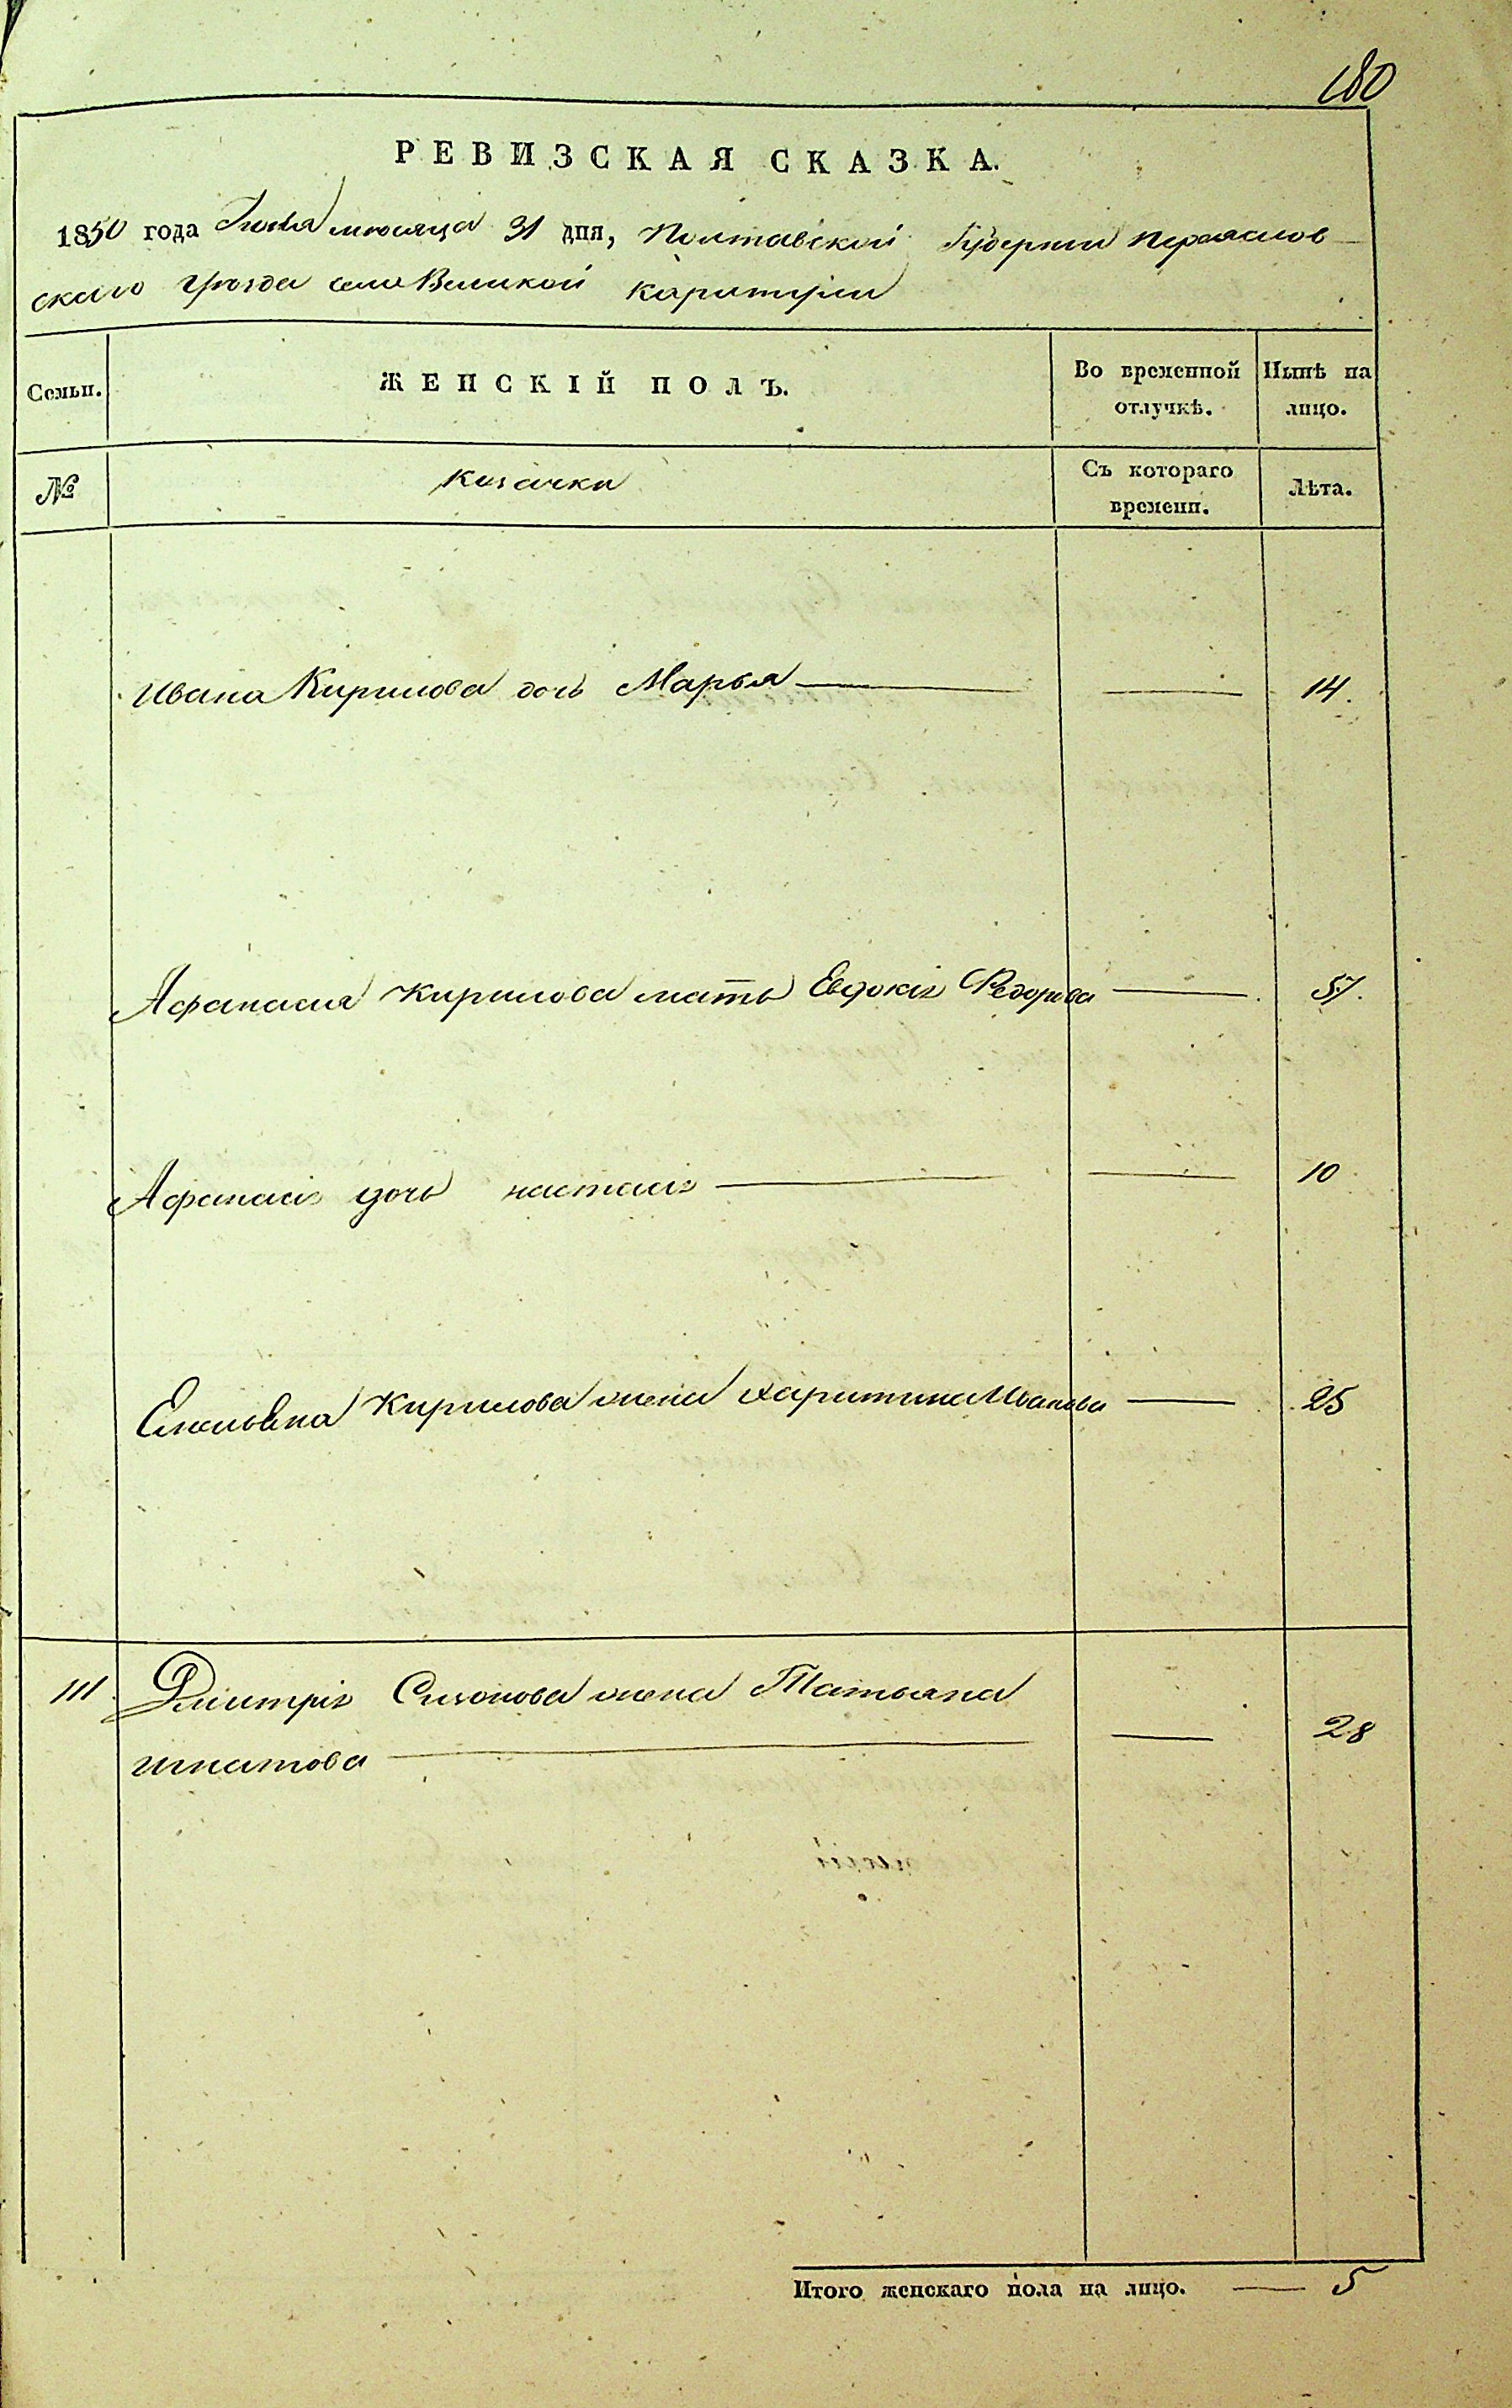 180
РЕВИЗСКАЯ СКАЗКА.
1850 года месяца 31 дня, Полтавской Губернии Переяслов
скаго уезда села Великой Каратули
Семьи.
ЖЕНСКІЙ ПОЛЪ.
Во временной
отлучкѣ.
Нынѣ на
лицо.
№
Козачки
Съ котораго
времени.
Лѣта.
Ивана Кирилова дочь Марья — — 14.
Афанасия Кирилова мать Евдокія Федорова — 57.
Афанасія дочь настасія — — 10
Емельяна Кирилова жена Харитина Иванова — 25
111 Дмитрія жена Татьяна
игнатова — — 28
Итого женскаго пола на лицо. — 5